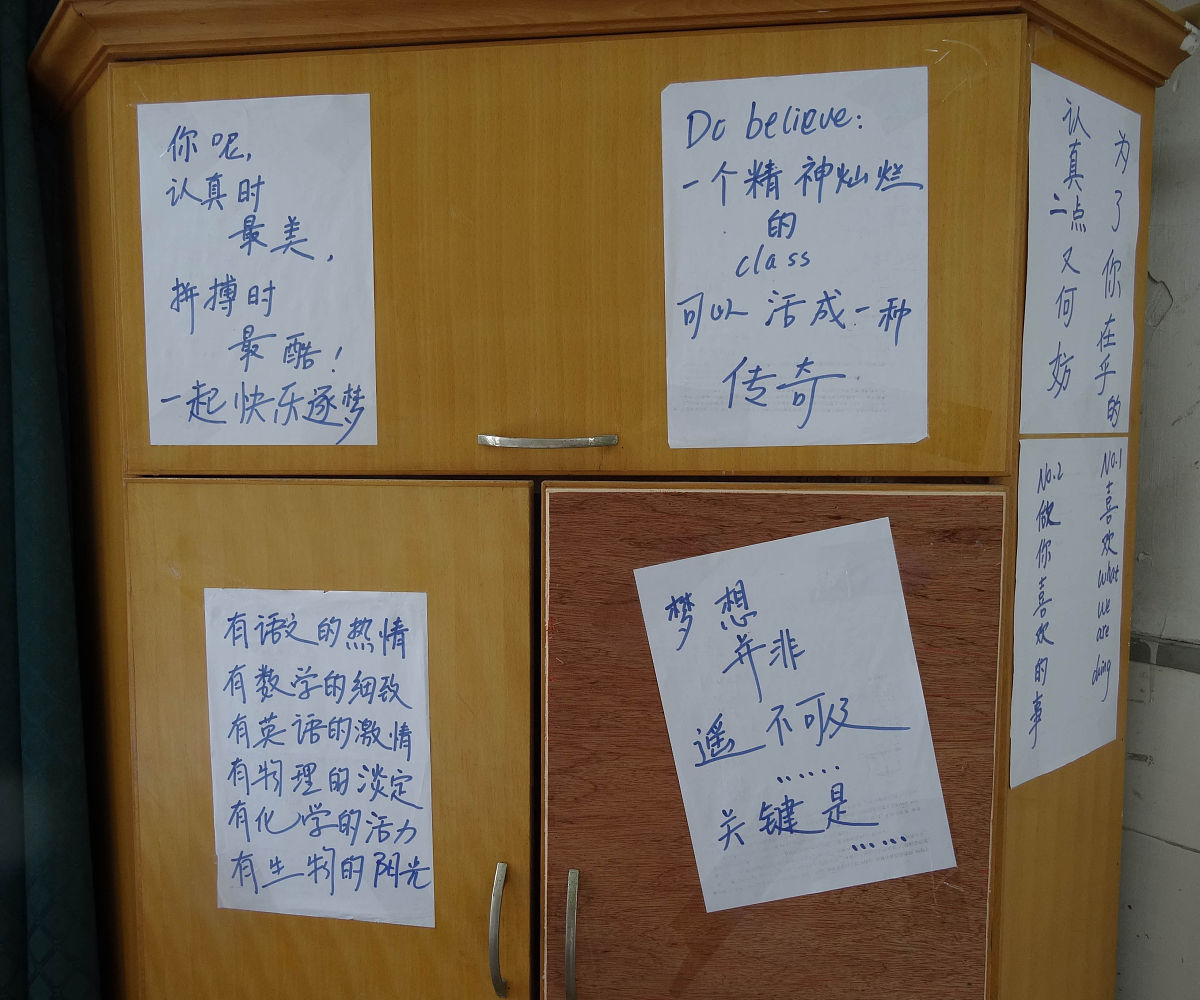 你呢,
认真时
最美,
拼搏时
最酷!
一起快乐逐梦
Do believe:
一个精神灿烂
的
class
可以活成一种
传奇
为了你在乎的
认真一点又何妨
No.1喜欢what we are doing
No.2做你喜欢的事
有语文的热情
有数学的细致
有英语的激情
有物理的淡定
有化学的活力
有生物的阳光
梦想
并非
遥不可及
……
关键是
……